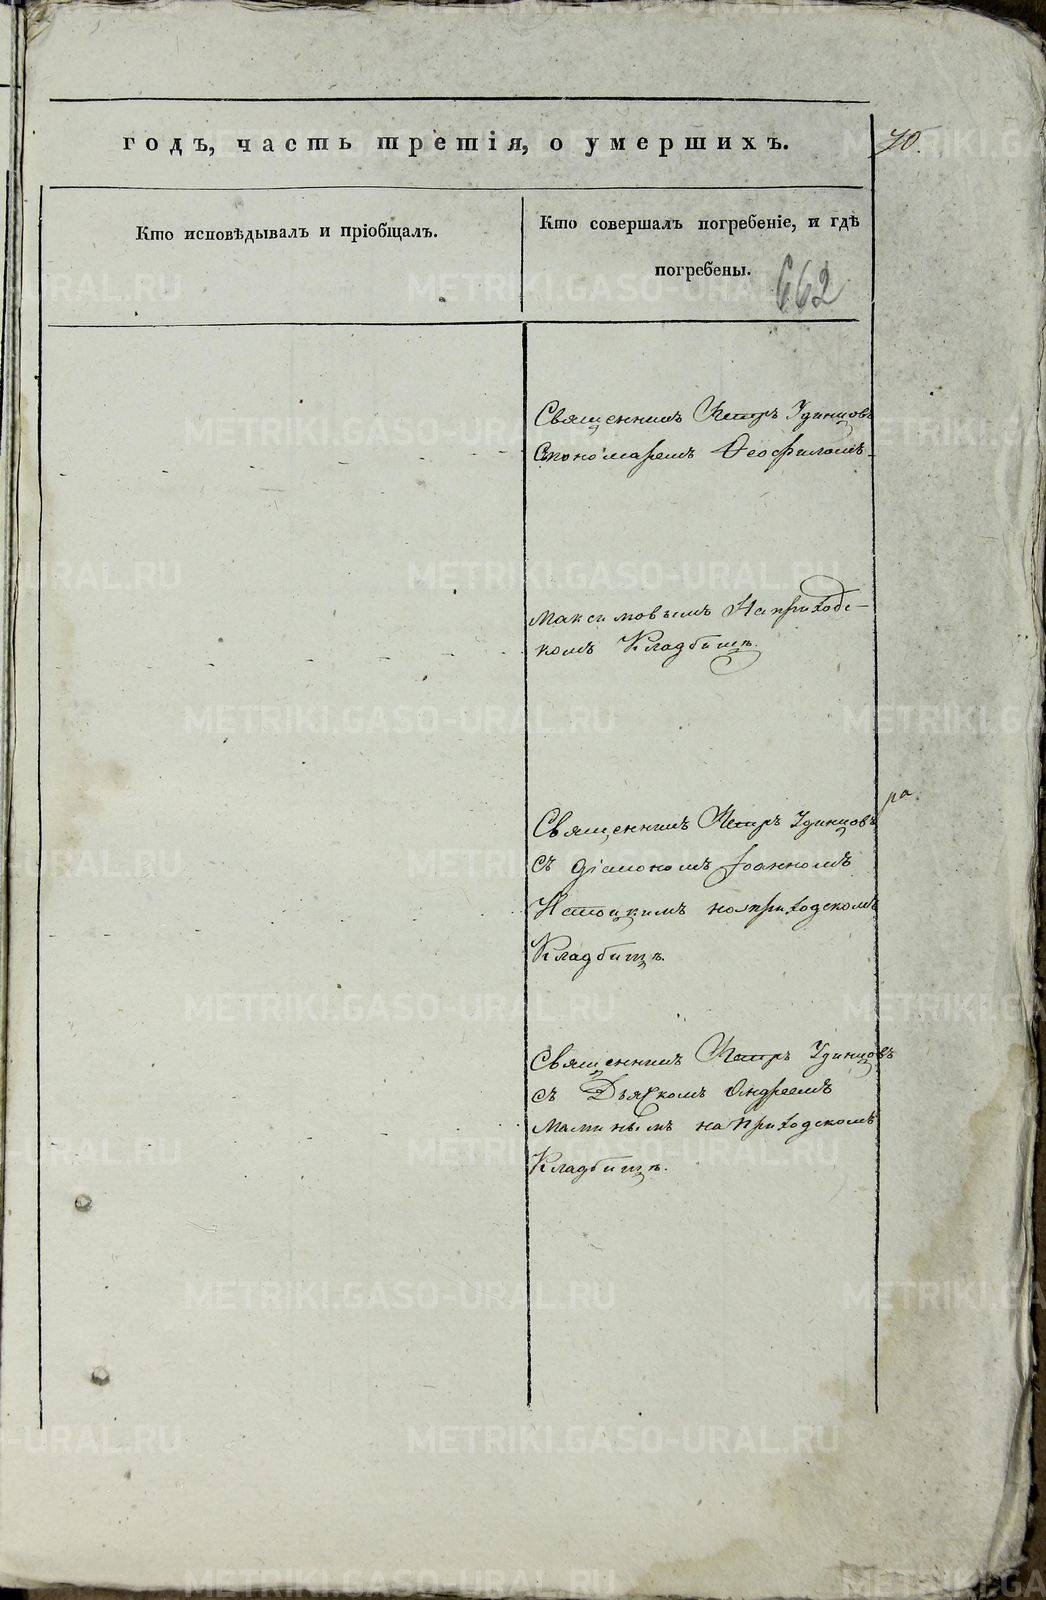 годъ, часть третія, о умершихъ.
70.
Кто исповѣдывалъ и пріобщалъ.
Кто совершалъ погребеніе, и гдѣ
погребены.
662
Священникъ Петръ Удинцовъ
Спономаремъ Феофиломъ
Максимовымъ На приходс-
комъ Кладбищѣ.
ра
Священникъ Петръ Удинцовъ
съ діакономъ Іоанномъ
на приходскомъ
Кладбищѣ.
Священникъ Петръ Удинцовъ
съ Дьячкомъ Андреемъ
Маминымъ на приходскомъ
Кладбищѣ.
METRIKI.GASO-URAL.RU